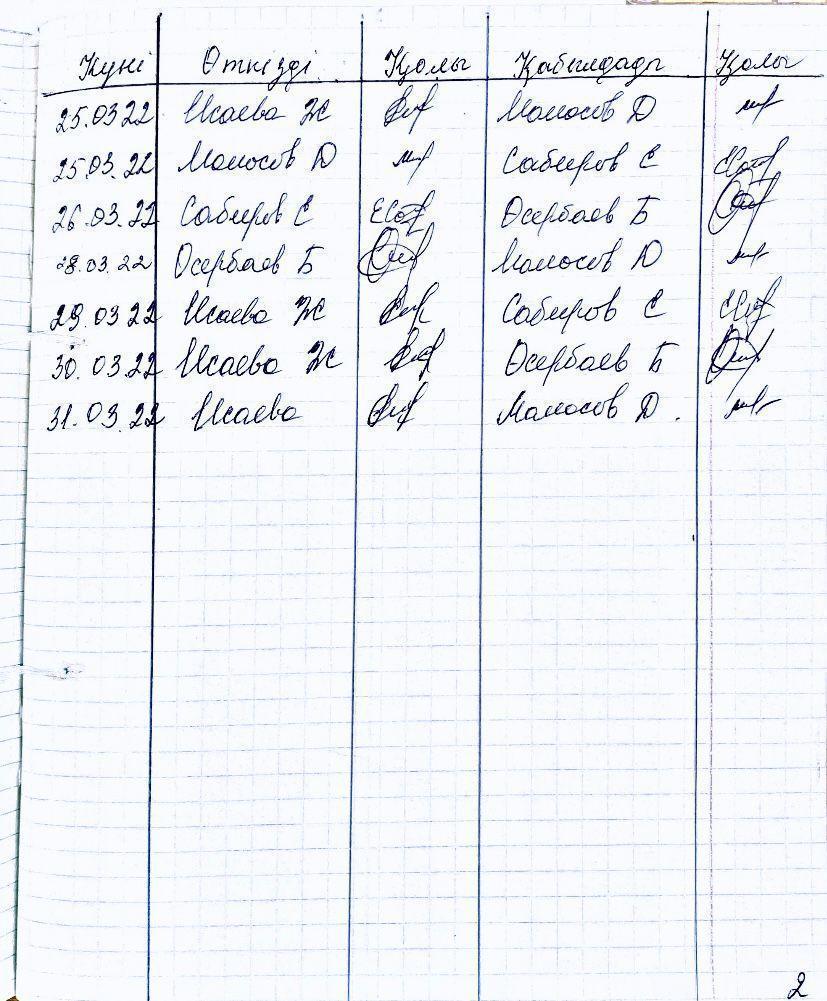 Күні Өткізді Қолы Қабылдады Қолы
25.03 22 Исаева Ж Мамосов Д
25.03.22 Мамосов Д Сабиров Е
26.03.22 Сабиров Е Өсербаев Б
28.03.22 Өсербаев Б Мамосов Д
29.03 22 Исаева Ж Сабиров Е
30.03.22 Исаева Ж Өсербаев Б
31.03.22 Исаева Мамосов Д.
2